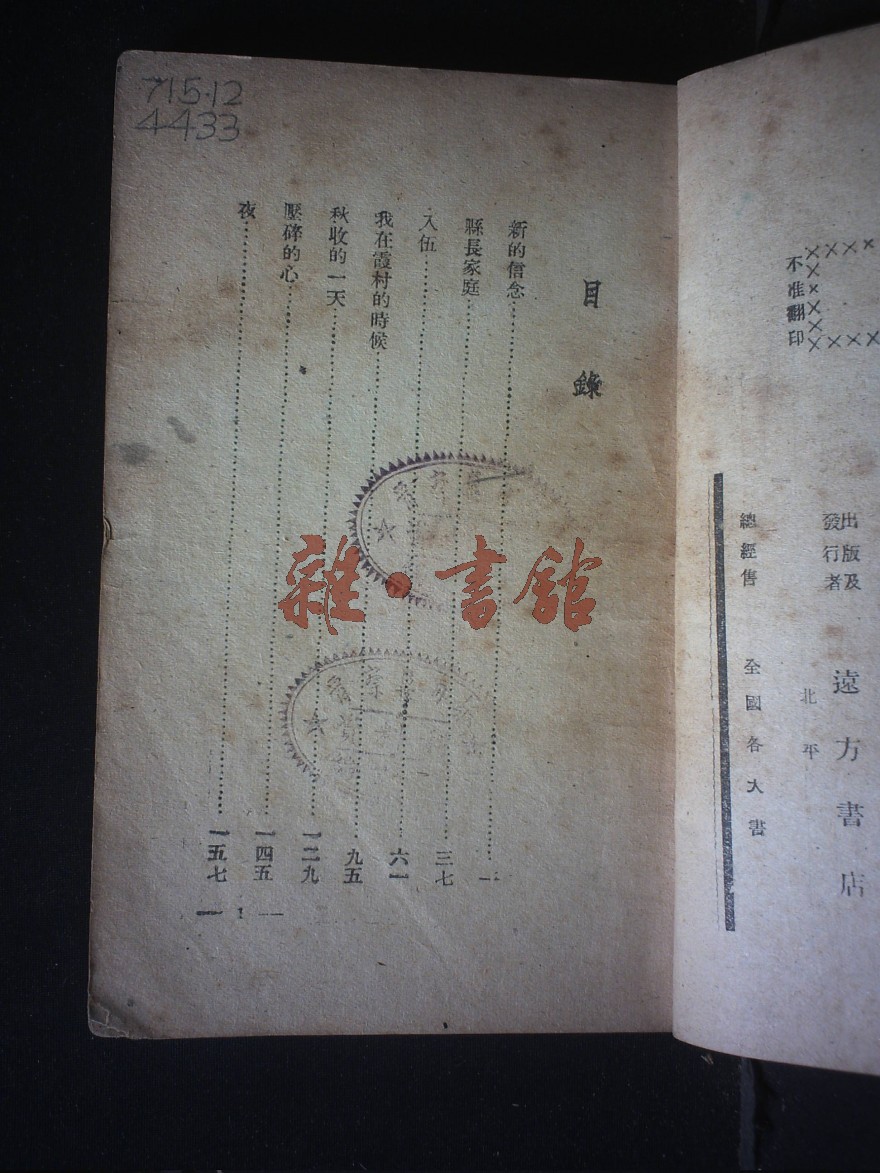 715.12
4433
目錄
新的信念 一
縣長家庭 三七
入伍 六一
我在霞村的時候 九五
秋收的一天 一二九
壓碎的心 一四五
夜 一五七
— 1 —
雜·書館
不准翻印
出版及
發行者
遠方書店
北平
總經售
全國各大書